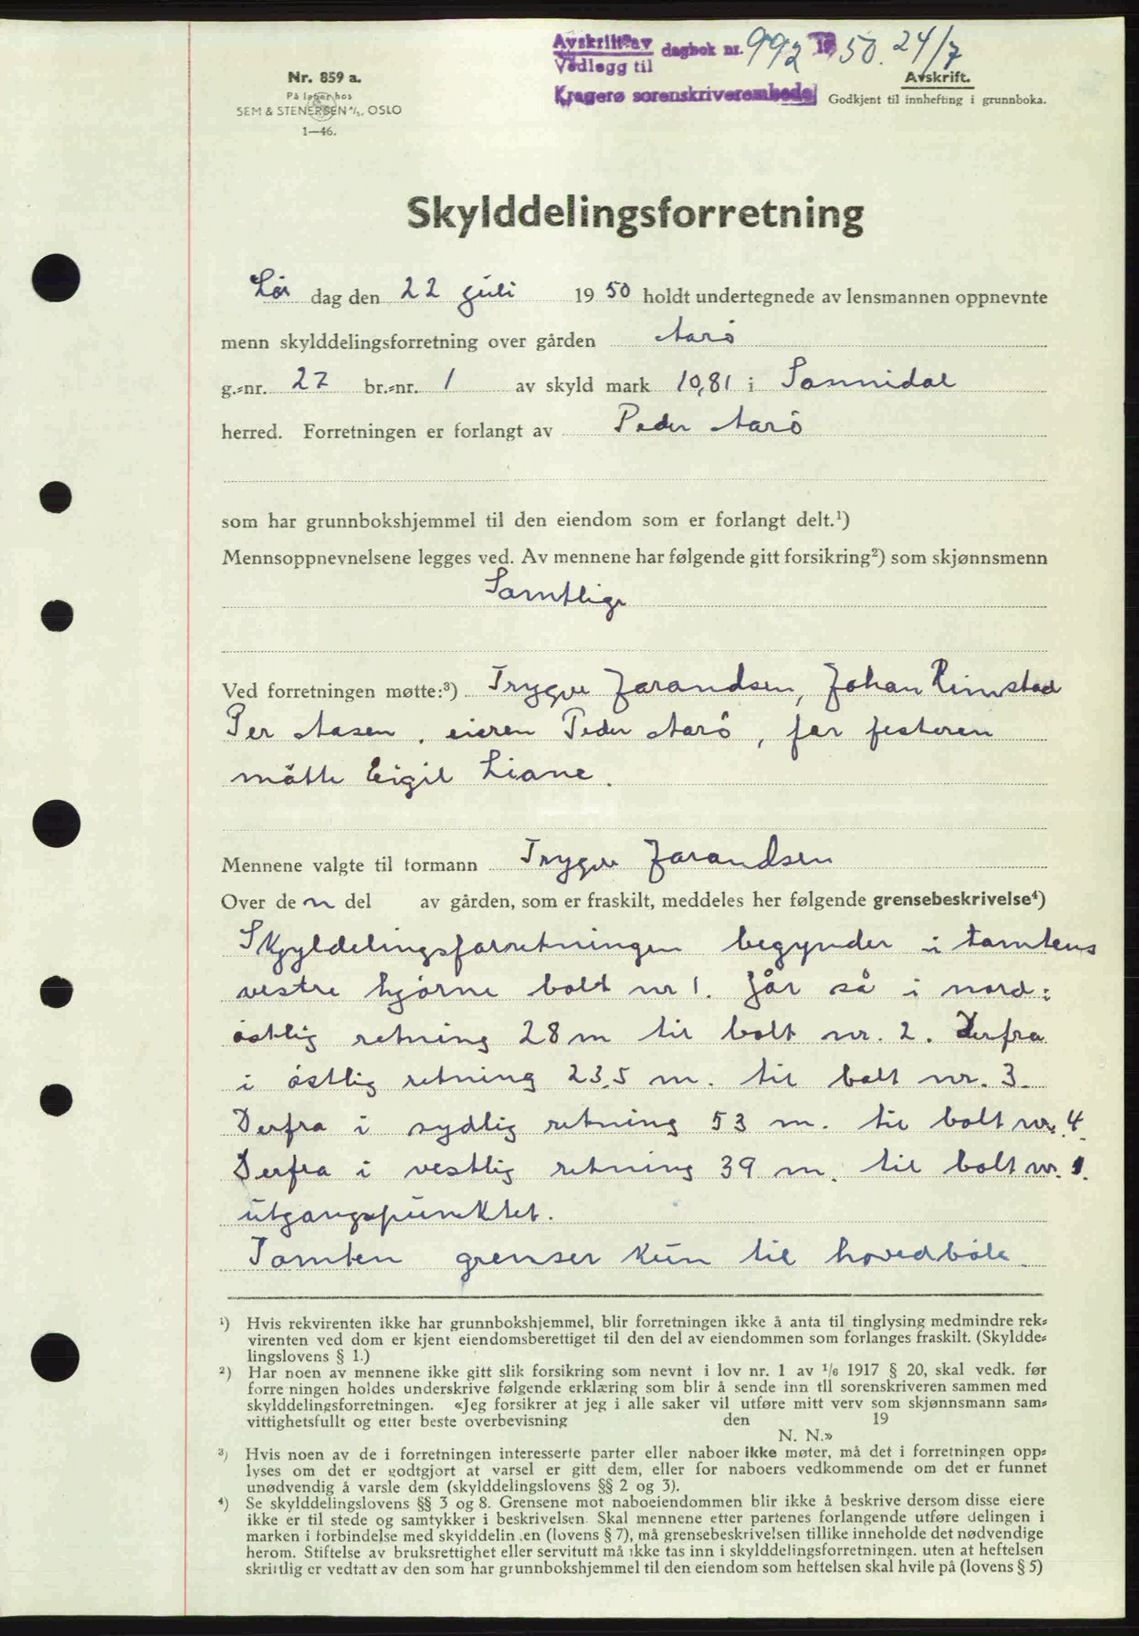 Avskrift av dagbok nr. 992 19 50. 24/7
Vedlegg til
Kragerø sorenskriverembede
Avskrift.
Godkjent til innhefting i grunnboka.
Nr. 859 a.
På lager hos
SEM & STENERSEN A/S, OSLO
1—46.
Skylddelingsforretning
Lør dag den 22 juli 19 50 holdt undertegnede av lensmannen oppnevnte
menn skylddelingsforretning over gården Aarö
g.-nr. 27 br.-nr. 1 av skyld mark 10,81 i Sannidal
herred. Forretningen er forlangt av Peder Aarö
som har grunnbokshjemmel til den eiendom som er forlangt delt.¹)
Mennsoppnevnelsene legges ved. Av mennene har følgende gitt forsikring²) som skjønnsmenn
Samtlige
Ved forretningen møtte:³) Trygve Jarandsen, Johan Rimstad
Per Aasen, eieren Peder Aarö, for festeren
mötte Eigil Liane.
Mennene valgte til formann Trygve Jarandsen
Over de n del av gården, som er fraskilt, meddeles her følgende grensebeskrivelse⁴)
Skyldelingsforretningen begynder i tomtens
vestre hjörne bolt nr 1. Går så i nord:
östlig retning 28 m til bolt nr. 2. Derfra
i östlig retning 23,5 m. til bolt nr. 3.
Derfra i sydlig retning 53 m. til bolt nr. 4.
Derfra i vestlig retning 39 m. til bolt nr. 1.
utgangspunktet.
Tomten grenser kun til hovedböle.
¹) Hvis rekvirenten ikke har grunnbokshjemmel, blir forretningen ikke å anta til tinglysing medmindre rek-
virenten ved dom er kjent eiendomsberettiget til den del av eiendommen som forlanges fraskilt. (Skyldde-
lingslovens § 1.)
²) Har noen av mennene ikke gitt slik forsikring som nevnt i lov nr. 1 av 1/6 1917 § 20, skal vedk. før
forretningen holdes underskrive følgende erklæring som blir å sende inn til sorenskriveren sammen med
skylddelingsforretningen. «Jeg forsikrer at jeg i alle saker vil utføre mitt verv som skjønnsmann sam-
vittighetsfullt og etter beste overbevisning den 19
N. N.»
³) Hvis noen av de i forretningen interesserte parter eller naboer ikke møter, må det i forretningen opp-
lyses om det er godtgjort at varsel er gitt dem, eller for naboers vedkommende om det er funnet
unødvendig å varsle dem (skylddelingslovens §§ 2 og 3).
⁴) Se skylddelingslovens §§ 3 og 8. Grensene mot naboeiendommen blir ikke å beskrive dersom disse eiere
ikke er til stede og samtykker i beskrivelsen. Skal mennene etter partenes forlangende utføre delingen i
marken i forbindelse med skylddelingen (lovens § 7), må grensebeskrivelsen tillike inneholde det nødvendige
herom. Stiftelse av bruksrettighet eller servitutt må ikke tas inn i skylddelingsforretningen, uten at heftelsen
skriftlig er vedtatt av den som har grunnbokshjemmel til den eiendom som heftelsen skal hvile på (lovens § 5)